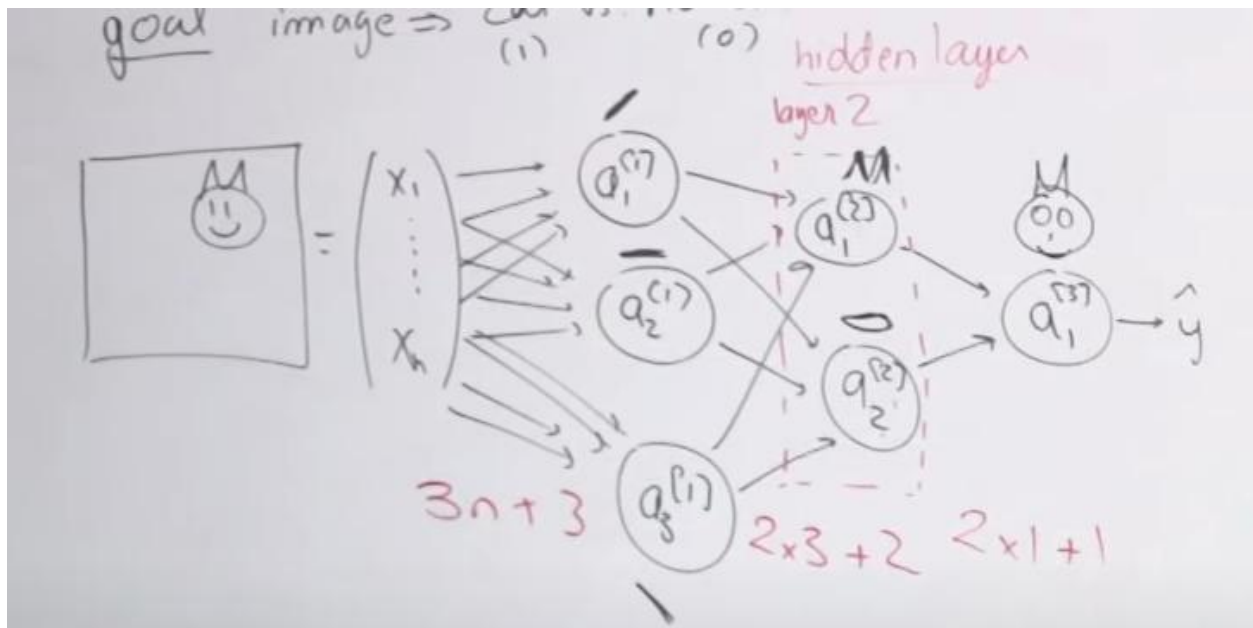 goal image ⇒
(1) (0)
hidden layer
layer 2
x₁
⋮
xₙ
=
a₁^[1]
a₂^[1]
a₃^[1]
a₁^[2]
a₂^[2]
a₁^[3]
ŷ
3n + 3
2×3 + 2
2×1 + 1